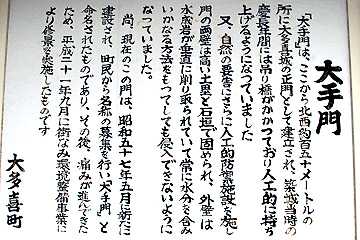 大手門
「大手門は、ここから北西約百五十メートルの
所に大多喜城の正門として建立され、築城当時の
慶長年間には吊り橋がかかっており人工的に持ち
上げるようになっていました
又、自然の要害にさらに人工的防害施設を施し
門の両壁は高い土塁と石垣で固められ、外壁は
水成岩が垂直に削り取られていて常に水分を含み
いかなる方法をもってしても侵入できないように
なっていました。
尚、現在この門は、昭和五十七年五月に新たに
建設され、町民から名称の募集を行い「大手門」と
命名されたものであり、その後、痛みが進んできた
ため、平成二十一年九月に街なみ環境整備事業に
より修繕を実施したものです
大多喜町